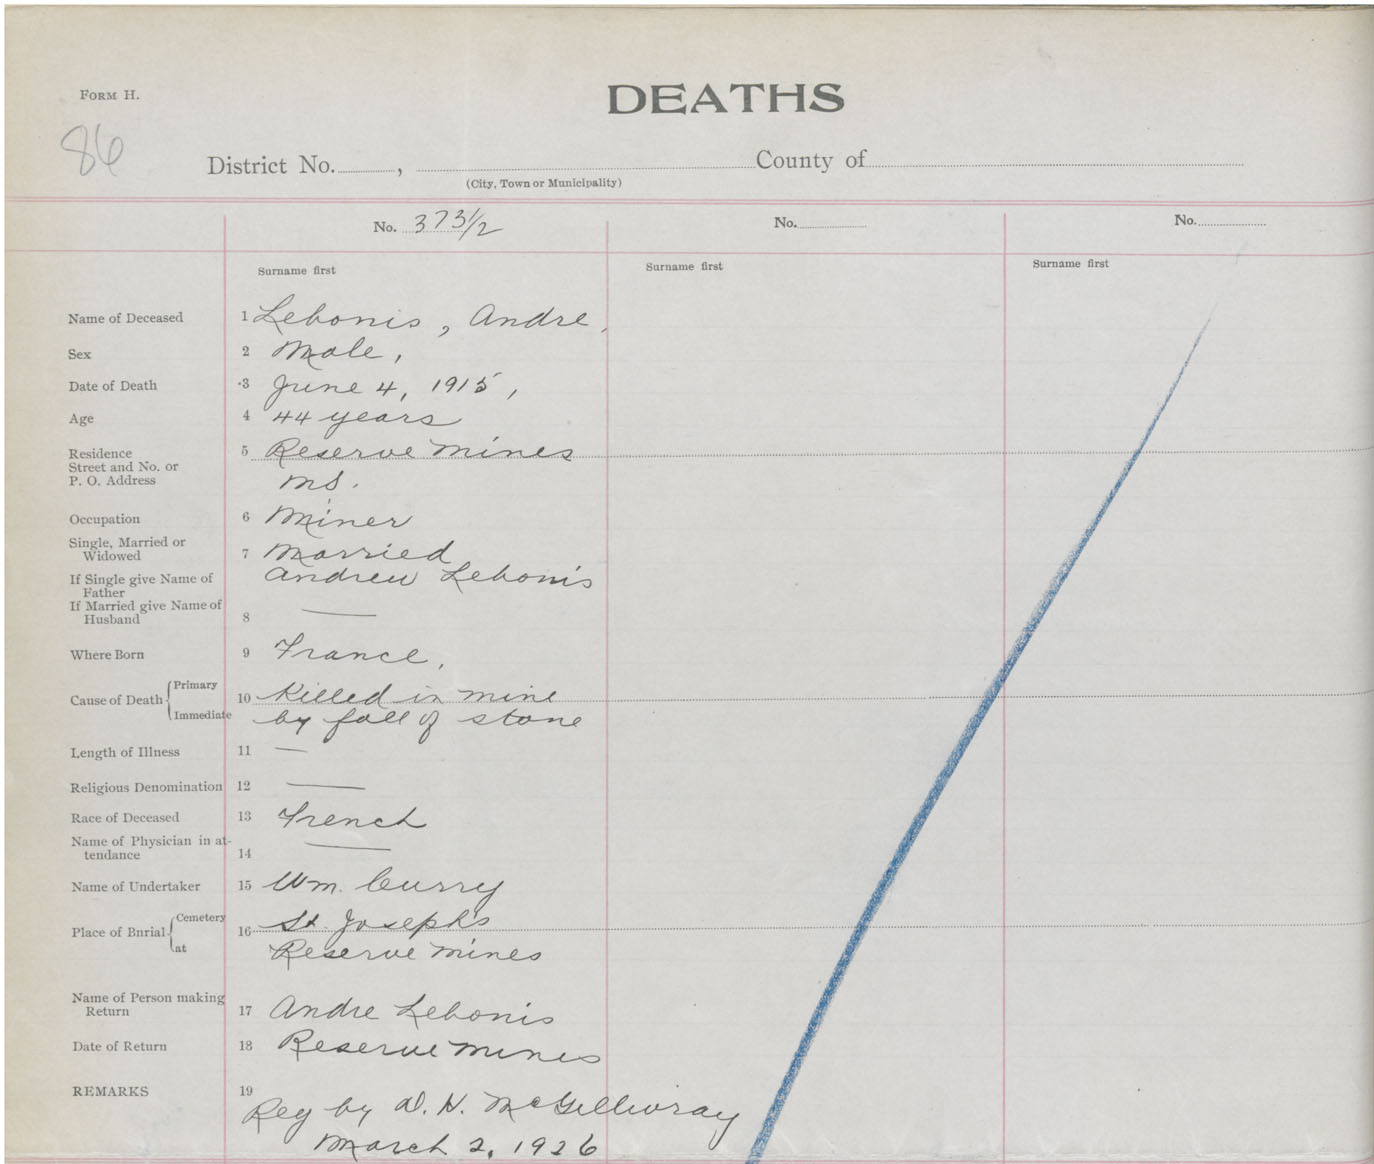 FORM H.
DEATHS
86
District No. , County of
(City, Town or Municipality)
No. 373½ No. No.
Surname first Surname first Surname first
Name of Deceased 1 Lebonis, Andre,
Sex 2 Male,
Date of Death 3 June 4, 1915,
Age 4 44 years
Residence 5 Reserve Mines
Street and No. or
P. O. Address NS.
Occupation 6 Miner
Single, Married or
Widowed 7 Married
If Single give Name of Andrew Lebonis
Father
If Married give Name of
Husband 8 —
Where Born 9 France,
Cause of Death Primary 10 Killed in mine
Immediate by fall of stone
Length of Illness 11 —
Religious Denomination 12 —
Race of Deceased 13 French
Name of Physician in at-
tendance 14 —
Name of Undertaker 15 Wm. Curry
Place of Burial Cemetery 16 St. Josephs
at Reserve Mines
Name of Person making
Return 17 Andre Lebonis
Date of Return 18 Reserve Mines
REMARKS 19
Reg by D. H. McGillivray
March 2, 1926